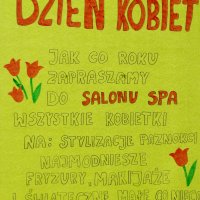 DZIEŃ KOBIET
JAK CO ROKU
ZAPRASZAMY
DO SALONU SPA
WSZYSTKIE KOBIETKI
NA: STYLIZACJE PAZNOKCI
NAJMODNIESZE
FRYZURY, MAKIJAŻE
I ŚWIĄTECZNE